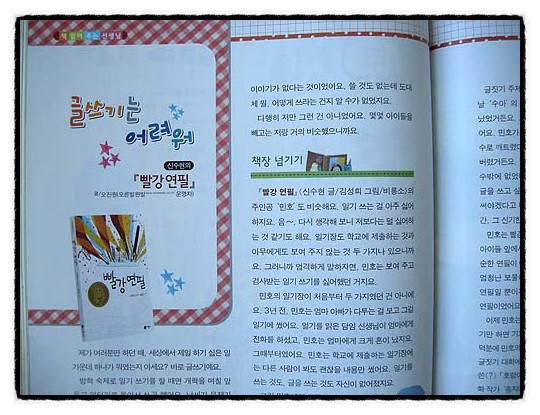 책 읽어 주는 선생님
글쓰기는
어려워
신수현의
『빨강 연필』
빨강 연필
제가 여러분만 하던 때, 세상에서 제일 하기 싫은 일
가운데 하나가 뭐였는지 아세요? 바로 글쓰기예요.
방학 숙제로 일기 쓰기를 할 때면 개학을 며칠 앞
이야기가 없다는 것이었어요. 쓸 것도 없는데 도대
체 뭘, 어떻게 쓰라는 건지 알 수가 없었지요.
다행히 저만 그런 건 아니었어요. 몇몇 아이들을
빼고는 저랑 거의 비슷했으니까요.
책장 넘기기
『빨강 연필』(신수현 글/김성희 그림/비룡소)의
주인공 '민호'도 비슷해요. 일기 쓰는 걸 아주 싫어
하지요. 음~, 다시 생각해 보니 저보다는 덜 싫어하
는 것 같기도 해요. 일기장도 학교에 제출하는 것과
아무에게도 보여 주지 않는 것 두 가지나 있으니까
요. 그러니까 엄격하게 말하자면, 민호는 보여 주고
검사받는 일기 쓰기를 싫어했던 거지요.
민호의 일기장이 처음부터 두 가지였던 건 아니에
요. 3년 전, 민호는 엄마 아빠가 다투는 걸 보고 그걸
일기에 썼어요. 일기를 읽은 담임 선생님이 엄마에게
전화를 하셨고, 민호는 엄마에게 크게 혼이 났지요.
그때부터였어요. 민호는 학교에 제출하는 일기장에
는 다른 사람이 봐도 괜찮을 내용만 썼어요. 일기를
쓰는 것도, 글을 쓰는 것도 자신이 없어졌지요.
글짓기 주제
날 '수아'의
났었거든요.
어요. 민호가
수로 깨트렸다
버렸거든요.
수밖에 없었
글을 쓰고 싶
써야겠다고
간, 그 신기한
민호는 빨강
아이들 앞에서
순한 연필이
엄청난 보물
연필일 뿐이
연필이었어요
이제 민호는
기만 하면 기
덕분에 민호의
글짓기 대회에